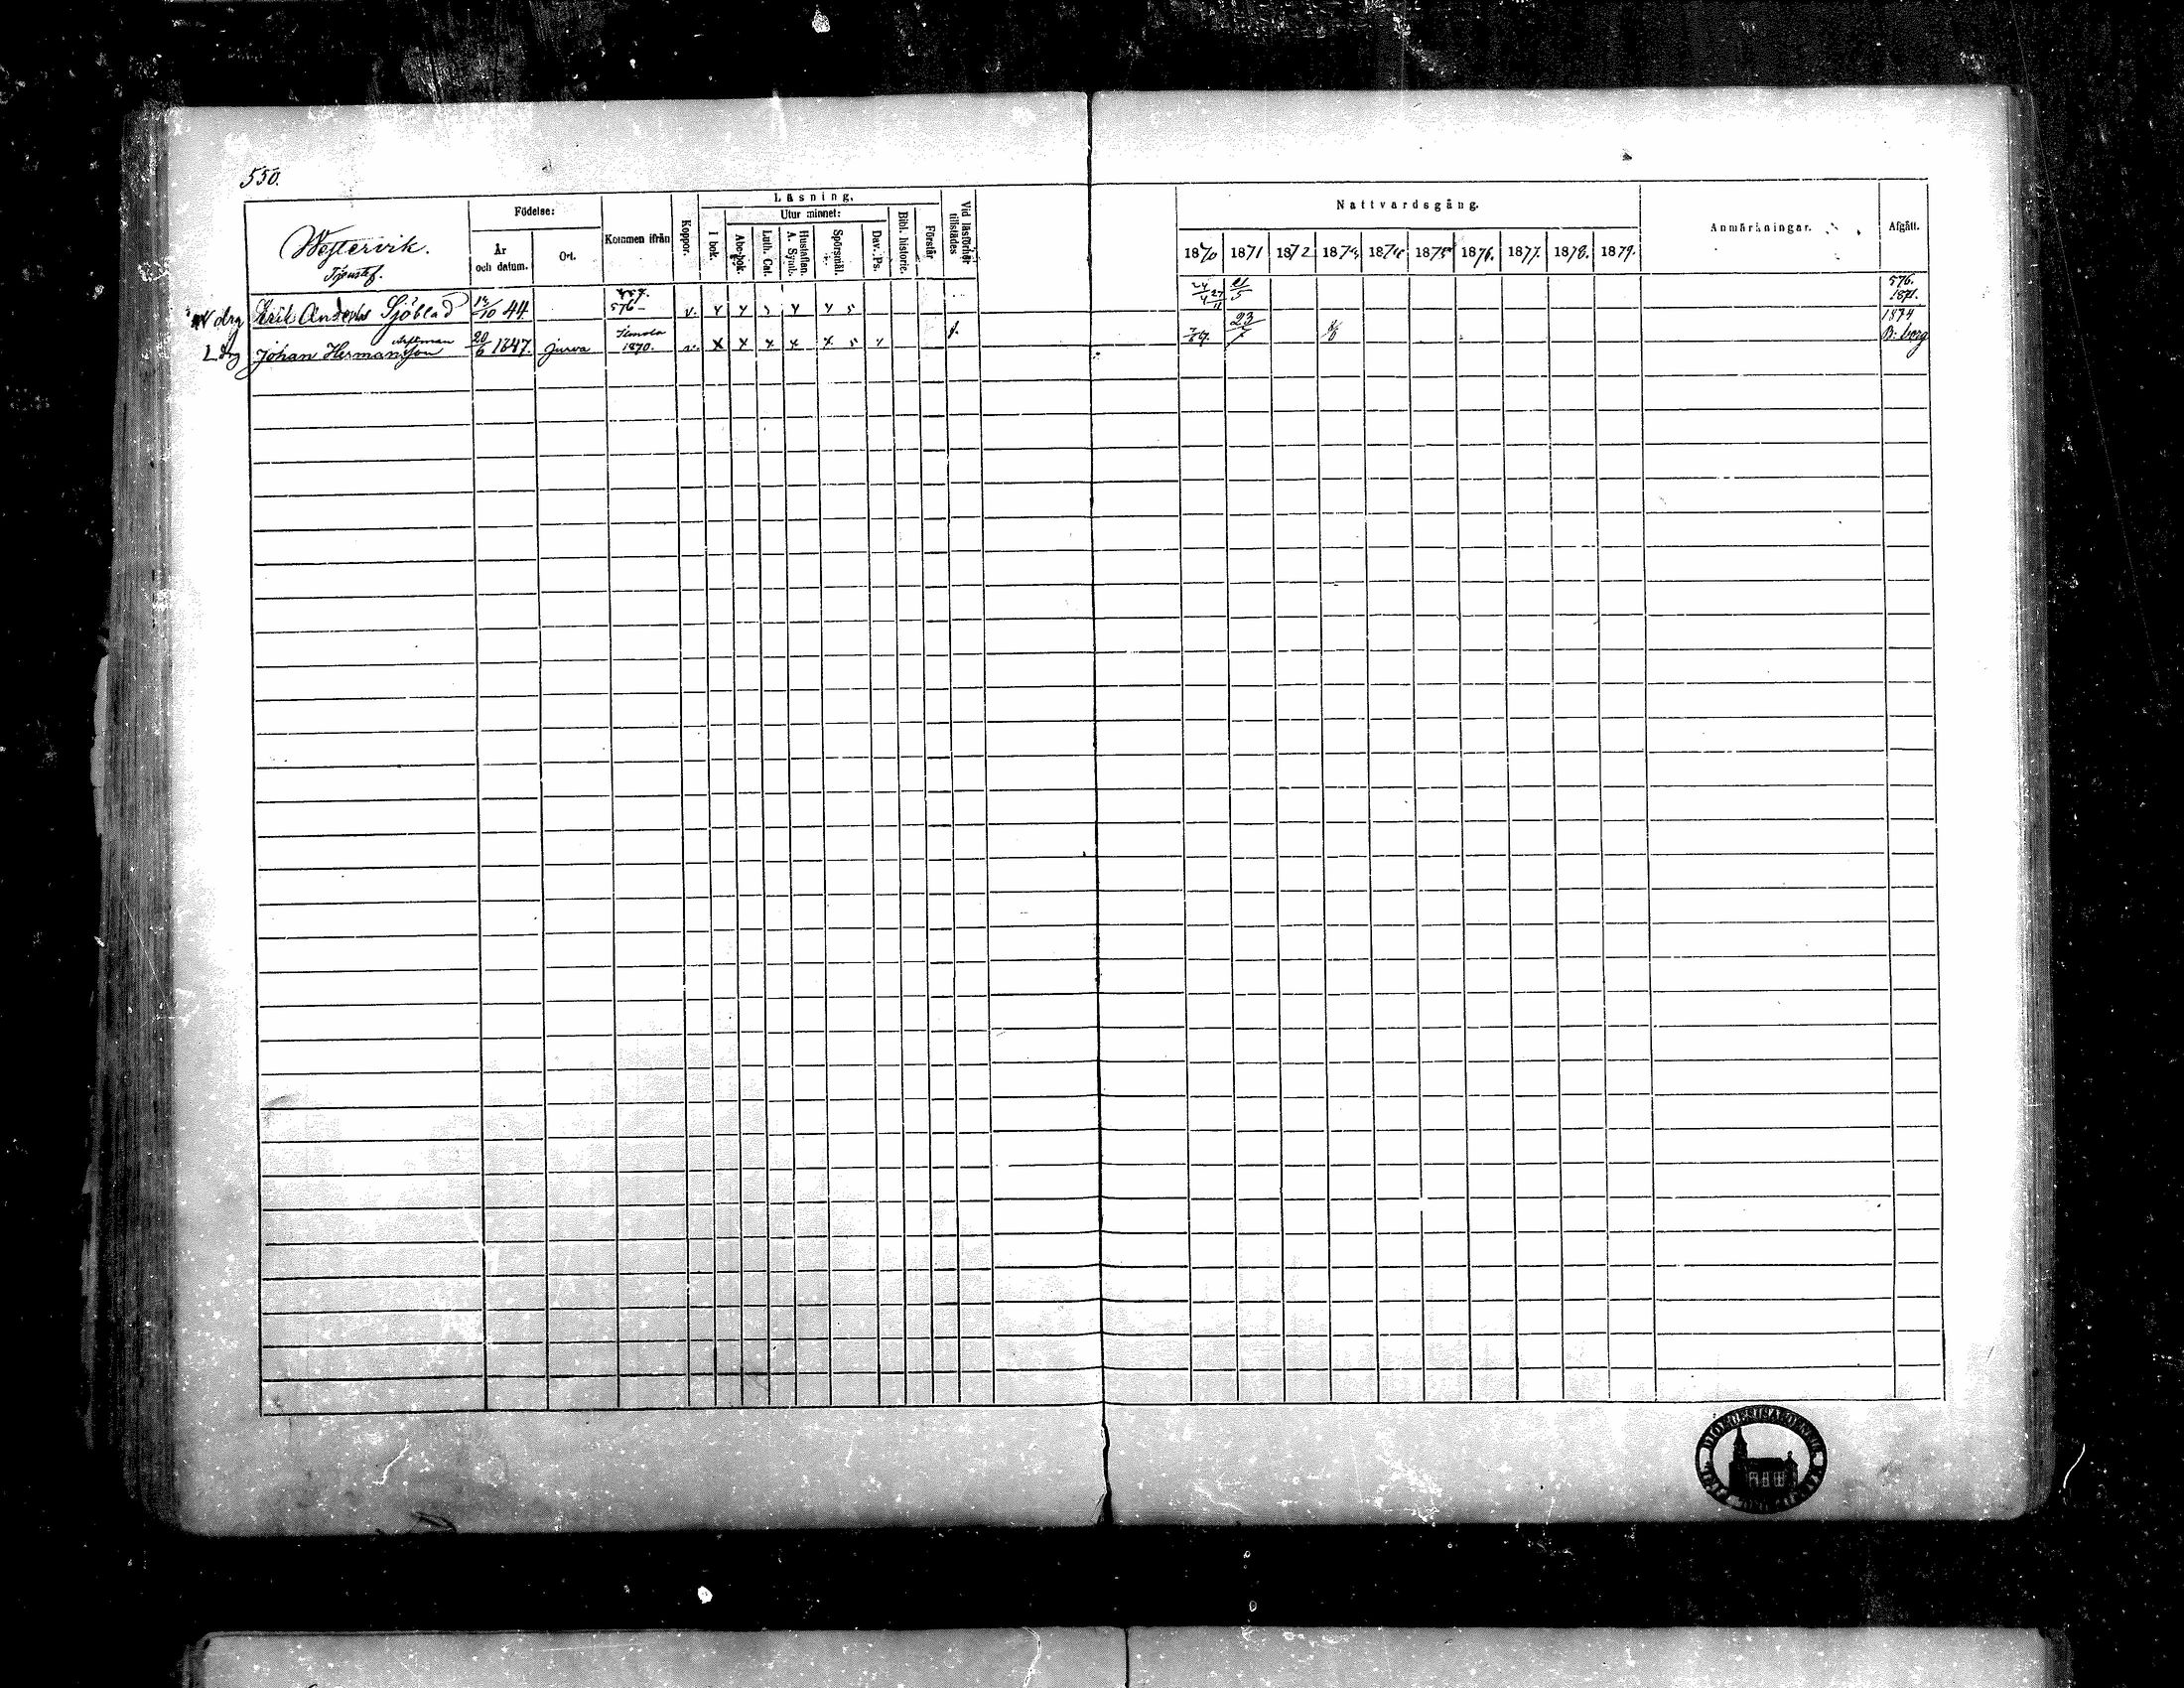 550.
Westervik.
Tjenstef.
Födelse:
År och datum.
Ort.
Kommen ifrån
Koppor.
Läsning.
I bok.
Utur minnet:
Abcbok.
Luth. Cat.
Hustaflan. A. Symb.
Spörsmål.
Dav. Ps.
Bibl. historie.
Förstår
Vid läsförhör tillstädes
Nattvardsgång.
1870 1871 1872 1873 1874 1875 1876. 1877. 1878. 1879.
Anmärkningar.
Afgått.
drg Erik Anders Sjöblad 10 44 576 v. 24/4 27/11 21/5 576. 1871.
drg Johan Hermansson 20/6 1847. Jurva 1870. v. 23/7 1874 B:berg